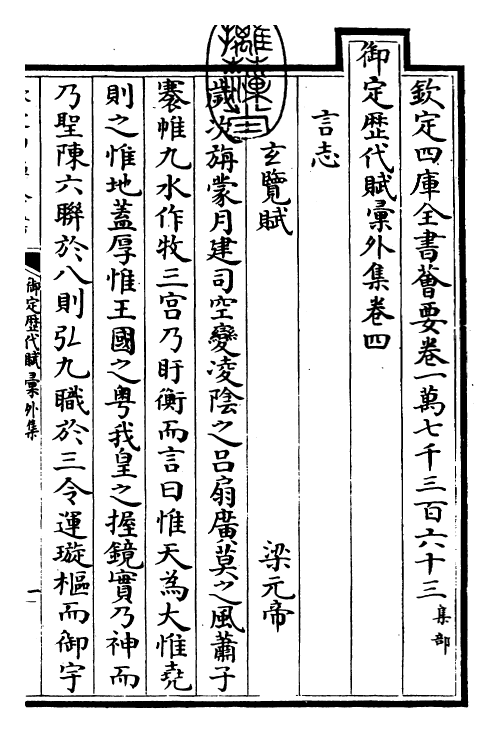 欽定四庫全書薈要卷一萬七千三百六十三 集部
御定歴代賦彙外集卷四
言志
玄覽賦 梁元帝
歲次旃蒙月建司空變凌陰之呂扇廣莫之風蕭子
褰帷九水作牧三宫乃盱衡而言曰惟天為大惟堯
則之惟地蓋厚惟王國之粤我皇之握鏡實乃神而
乃聖陳六聨於八則弘九職於三令運璇樞而御宇
御定歴代賦彙外集
一